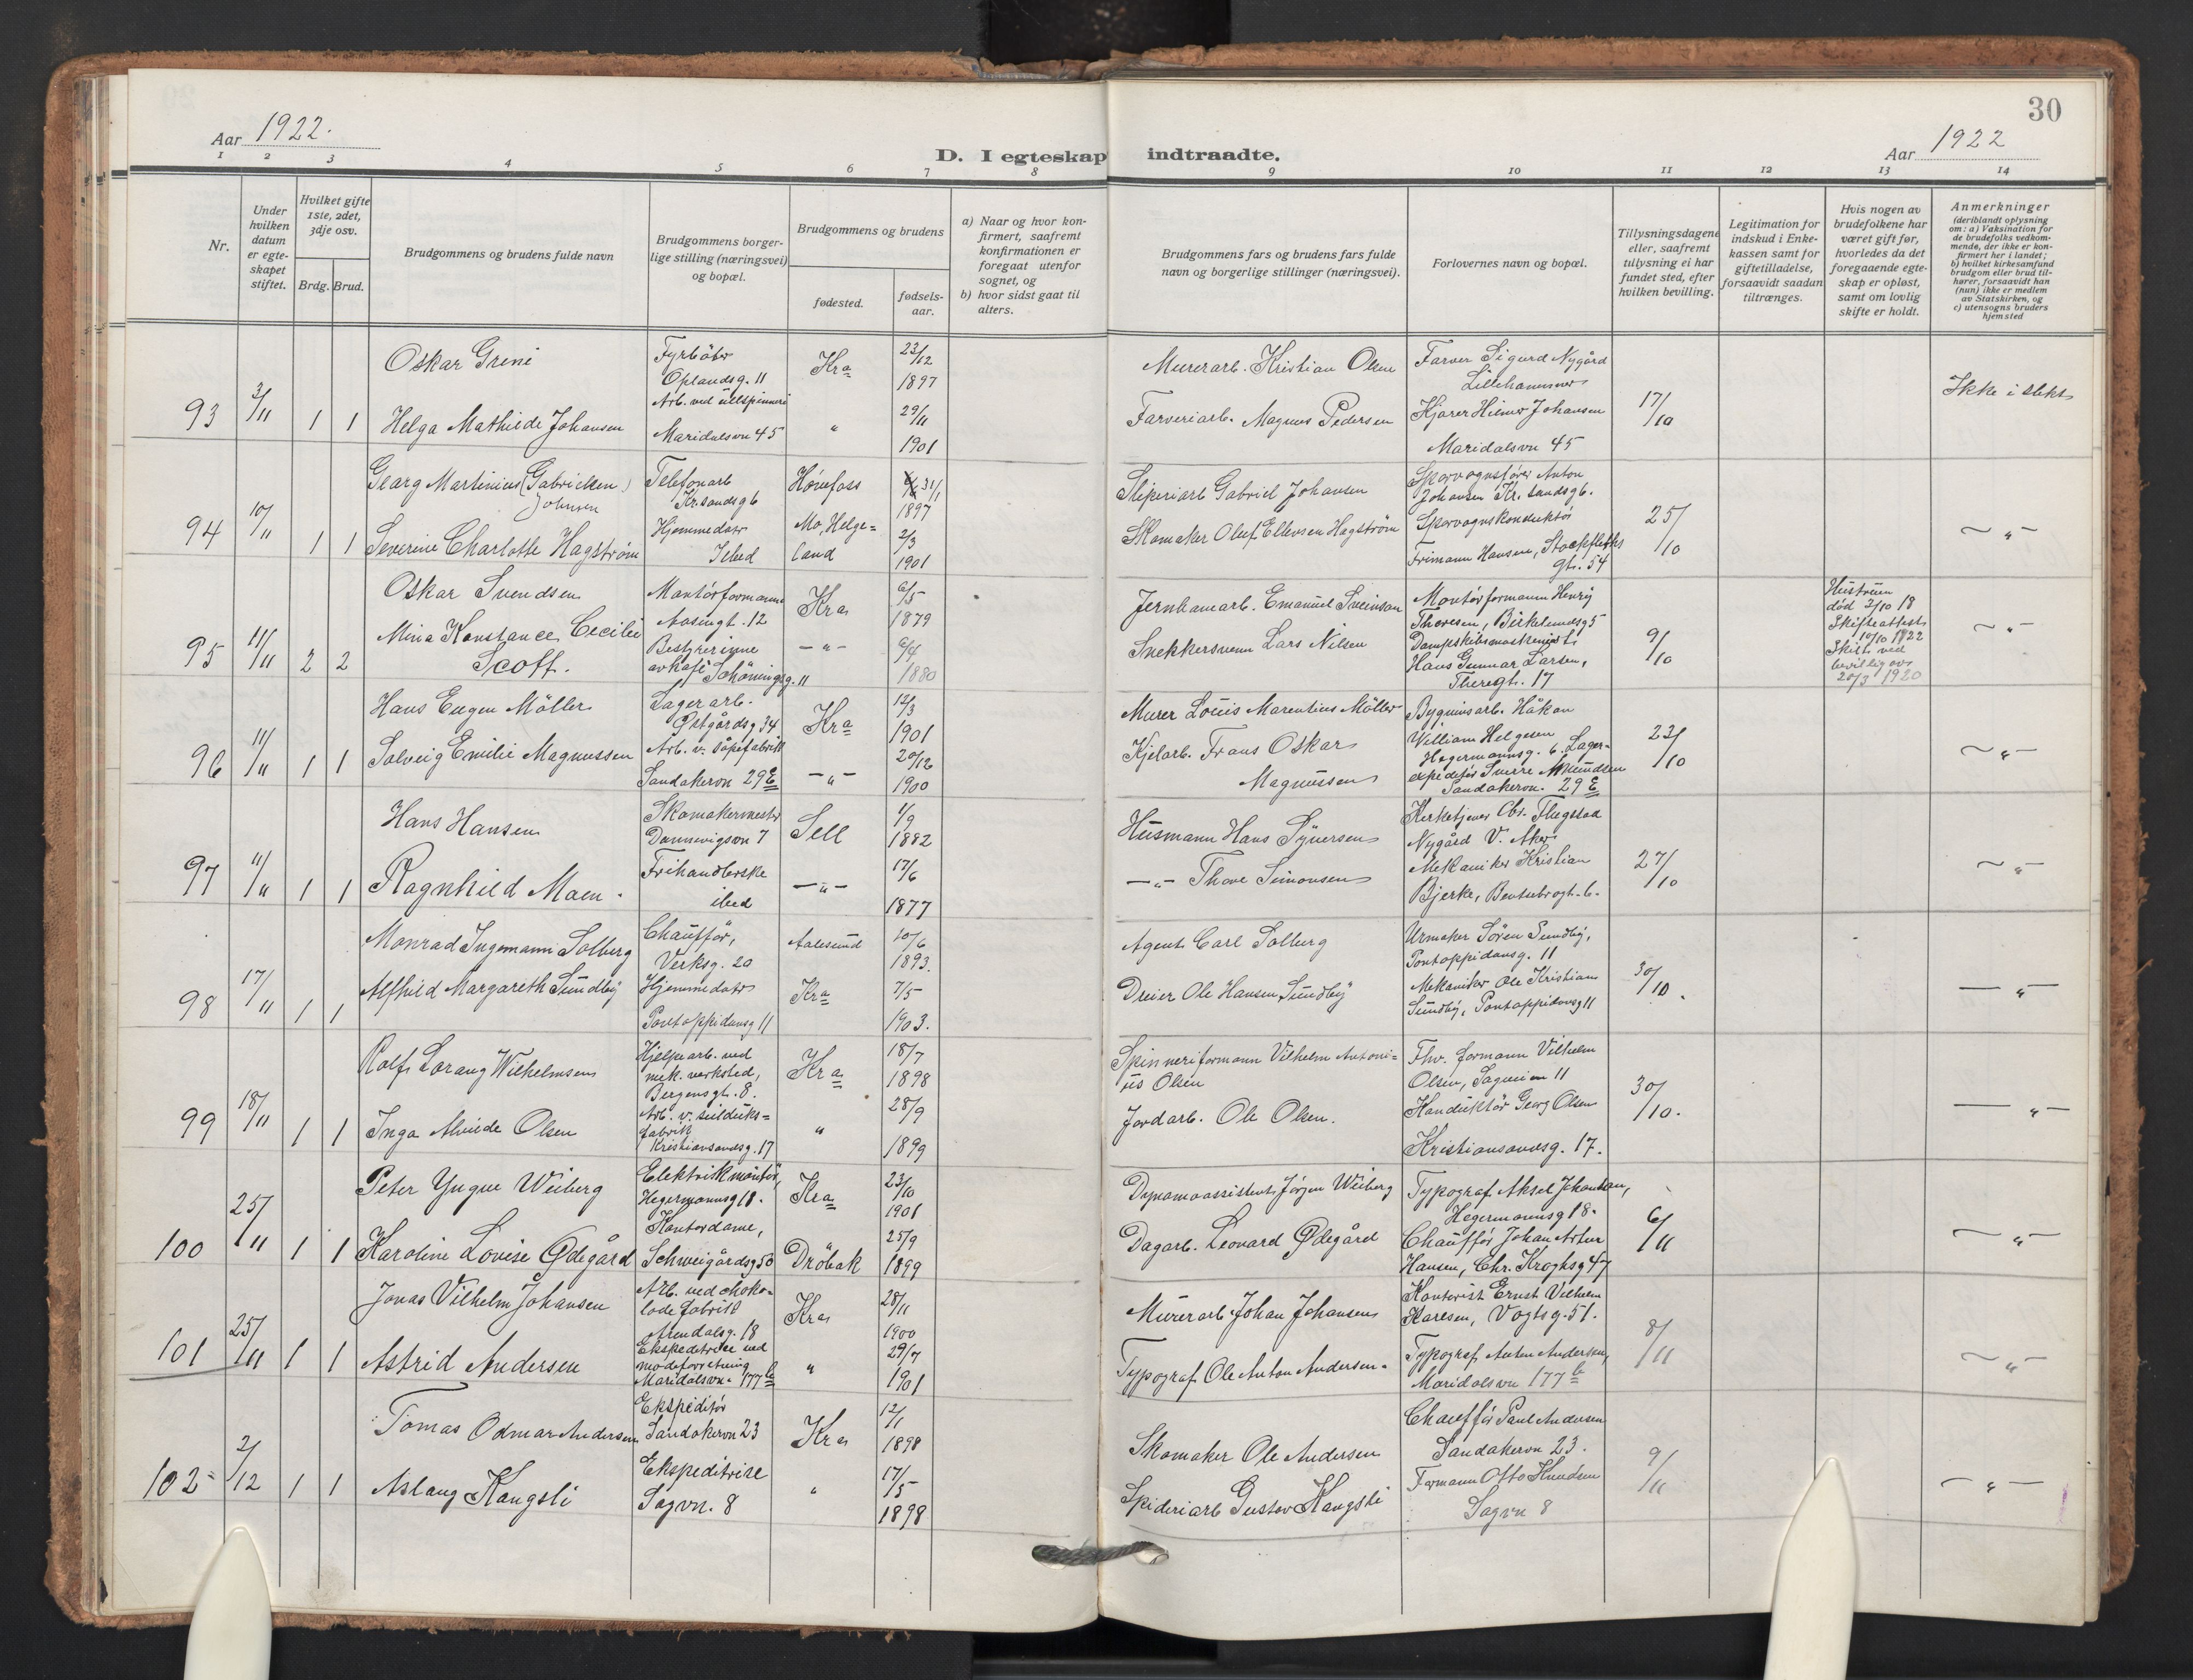 30
Aar 1922.
Aar 1922
D. I egteskap indtraadte.
1 2 3 4 5 6 7 8 9 10 11 12 13 14
Nr.
Under hvilken datum er egteskapet stiftet.
Hvilket gifte 1ste, 2det, 3dje osv.
Brdg. Brud.
Brudgommens og brudens fulde navn
Brudgommens borgerlige stilling (næringsvei) og bopæl.
Brudgommens og brudens
fødested.
fødselsaar.
a) Naar og hvor konfirmert, saafremt konfirmationen er foregaat utenfor sognet, og
b) hvor sidst gaat til alters.
Brudgommens fars og brudens fars fulde navn og borgerlige stillinger (næringsvei).
Forlovernes navn og bopæl.
Tillysningsdagene eller, saafremt tillysning ei har fundet sted, efter hvilken bevilling.
Legitimation for indskud i Enkekassen samt for giftetilladelse, forsaavidt saadan tiltrænges.
Hvis nogen av brudefolkene har været gift før, hvorledes da det foregaaende egteskap er opløst, samt om lovlig skifte er holdt.
Anmerkninger
(deriblandt oplysning om: a) Vaksination for de brudefolks vedkommende, der ikke er konfirmert her i landet; b) hvilket kirkesamfund brudgom eller brud tilhører, forsaavidt han (hun) ikke er medlem av Statskirken, og c) utensogns bruders hjemsted
93 3/11 1 1
Oskar Greni
Fyrbøter
Oplandsg. 11
Kra
23/12
1897
Helga Mathilde Johansen
Arb. ved ullspinneri
Maridalsvn 45
"
29/11
1901
Murerarb. Kristian Olsen
Farveriarb. Magnus Pedersen
Farver Sigurd Nygård
Lillehammer
Kjører Hilmar Johansen
Maridalsvn 45
17/10
Ikke i slekt
94 10/11 1 1
Georg Martinius (Gabrielsen)
Johnsen
Telefonarb
Kr.sandsg 6
Hønefoss
31/1
1897
Severine Charlotte Hagstrøm
Hjemmedatr
Ibed
Mo, Helge=
land
2/3
1901
Sliperiarb Gabriel Johansen
Skomaker Oluf Ellevsen Hagstrøm
Sporvognsfører Anton
Johansen Kr. sandsg 6.
Sporvognskonduktør
Frimann Hansen, Stockfleths
gt. 54
25/10
- " -
95 11/11 2 2
Oskar Svendsen
Montørformann
Aasengt. 12
Kra
6/5
1879
Mina Konstance Cecilie
Scott.
Bestyrerinne
av kafe Schøningsg. 11
- " -
6/4
1880
Jernbanearb. Emanuel Sveinson
Snekkersvenn Lars Nilsen
Montørformann Henry
Thoresen, Birkelundsg 5
Dampskibsmaskinist
Hans Gunnar Larsen,
Theresgt. 17
9/10
Hustruen
død 2/10 18
Skifteattest
10/10 1922
Skilt ved
bevillig av
20/3 1920
- " -
96 11/11 1 1
Hans Eugen Møller
Lagerarb.
Østgårdsg 34
Kra
12/3
1901
Solveig Emilie Magnussen
Arb. v. såpefabrikk
Sandakervn 29 E
- " -
20/12
1900
Murer Louis Marentius Møller
Kjelarb. Frans Oskar
Magnussen
Bygningsarb. Håkon
William Helgesen
Hegermannsg. 6. Lager-
expeditør Sverre Amundsen
Sandakervn. 29 E
23/10
- " -
97 11/11 1 1
Hans Hansen
Skomakermester
Dannevigsvn 7
Sell
1/9
1882
Ragnhild Moen
Frihandlerske
ibed
- " -
17/6
1877
Husmann Hans Syversen
- " - Thove Simonsen
Kirketjener Chr. Flugstad
Nygård V. Aker
Mekaniker Kristian
Bjerke, Bentsebrogt. 6.
27/10
- " -
98 17/11 1 1
Monrad Ingemann Solberg
Chauffør,
Verksg. 2a
Aalesund
10/6
1893.
Alfhild Margareth Sundby
Hjemmedatr
Pontoppidansg 11
Kra
7/5
1903.
Agent Carl Solberg
Dreier Ole Hansen Sundby
Urmaker Søren Sundby,
Pontoppidansg. 11
Mekaniker Ole Kristian
Sundby, Pontoppidansg 11
30/10.
- " -
99 18/11 1 1
Rolf Lorang Wilhelmsen
Hjelpearb. ved
mek. verksted,
Bergensgt. 8.
Kra
18/7
1898
Inga Alvilde Olsen
Arb. v. seilduks=
fabrik
Kristiansandsg. 17
"
28/9
1899
Spinneriformann Vilhelm Antoni=
us Olsen
Jordarb. Ole Olsen.
Fhv. formann Vilhelm
Olsen, Sagveien 11
Konduktør Georg Olsen
Kristiansandsg. 17.
30/10.
- " -
100 25/11 1 1
Peter Yngve Wiberg
Elektrikmontør,
Hegermannsg 18.
Kra
23/10
1901
Karoline Lovise Ødegård
Kontordame,
Schweigårdsg 50
Drøbak
25/9
1899
Dynamoassistent Jørgen Wiberg
Dagarb. Leonard Ødegård
Typograf Aksel Johansen,
Hegermannsg 18.
Chauffør Johan Artur
Hansen, Chr. Kroghsg 47
6/11
- " -
101 25/11 1 1
Jonas Vilhelm Johansen
Arb. ved choko-
lade fabrikk
Arendalsg. 18
Kra
28/11
1900
Astrid Andersen
Ekspeditrice ved
moteforretning
Maridalsvn. 177 b
"
29/7
1901
Murerarb Johan Johansen
Typograf Ole Anton Andersen.
Kontorist Ernst Vilhelm
Karlsen, Vogtsg. 51.
Typograf Anton Andersen,
Maridalsvn 177 b
8/11
- " -
102 2/12 1 1
Tomas Odmar Andersen
Ekspeditør
Sandakervn 23
Kra
12/1
1898
Aslaug Kangsli
Ekspeditrise
Sagvn. 8
"
17/5
1898
Skomaker Ole Andersen
Spideriarb Gustav Kangsli
Chauffør Paul Andersen
Sandakervn 23.
Formann Otto Knudsen
Sagvn 8
9/11
- " -